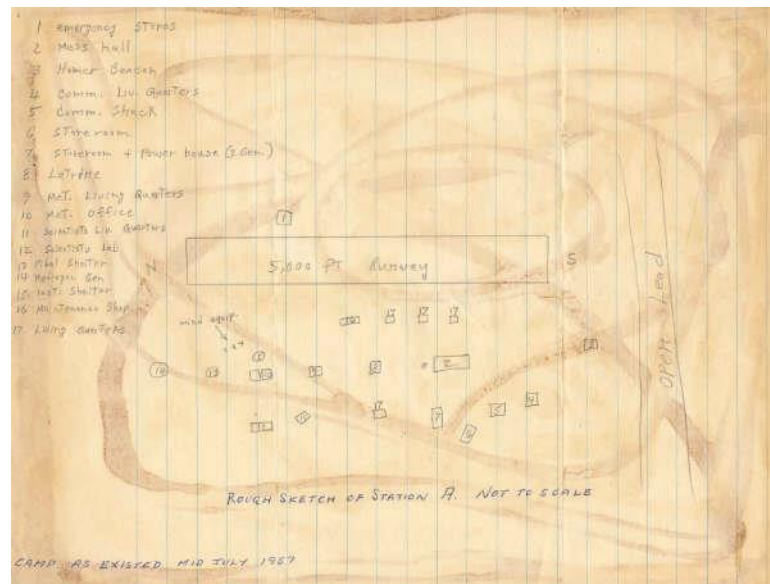 1 emergency STores
2 Mess hall
3 Homer Beacon
4 Comm. Liv. Quarters
5 Comm. Shack
6 STore room
7 SToreroom + Power house (2 Gen.)
8 LaTrine
9 MeT. Living QuarTers
10 MeT. Office
11 ScienTisTs Liv. QuarTers
12 ScienTisTs Lab
13 Pibal ShelTer
14 Hydrogen Gen
15 Inst. ShelTer
16 MainTenance Shop
17 Living QuarTers
1
N
5,000 FT Runway
S
Open Lead
wind equip
16 17 17 17
14 13
2
17
12
7 5 4
6
ROUGH SKETCH OF STATION A. NOT TO SCALE
CAMP AS EXISTED MID JULY 1957